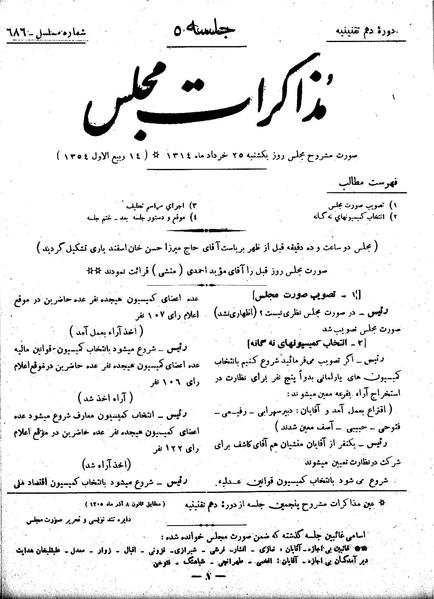 دورهٔ دهم تقنینیه
جلسه ۵۰
شماره مسلسل ـ ۶۸۶
مذاکرات مجلس
صورت مشروح مجلس روز یکشنبه ۲۵ خرداد ماه ۱۳۱۴ * (۱۴ ربیع الاول ۱۳۵۴)
فهرست مطالب
۱) تصویب صورت مجلس
۲) انتخاب کمیسیونهای نه گانه
۳) اجرای مراسم تحلیف
۴) موقع و دستور جلسه بعد ـ ختم جلسه
(مجلس دو ساعت و ده دقیقه قبل از ظهر بریاست آقای حاج میرزا حسن خان اسفند یاری تشکیل گردید)
صورت مجلس روز قبل را آقای مؤید احمدی (منشی) قرائت نمودند **
[۱ ـ تصویب صورت مجلس]
رئیس ـ در صورت مجلس نظری نیست؟ (اظهاری نشد)
صورت مجلس تصویب شد
[۲ ـ انتخاب کمیسیونهای نه گانه]
رئیس ـ اگر تصویب می‌فرمائید شروع کنیم بانتخاب
کمیسیون های پارلمانی بدواً پنج نفر برای نظارت در
استخراج آراء بقرعه معین میشوند:
(اقتراع بعمل آمد و آقایان: دبیر سهرابی ـ رفیعی ـ
فتوحی ـ حبیبی ـ آصف معین شدند)
رئیس ـ یکنفر از آقایان منشیان هم آقای کاشف برای
شرکت در نظارت تعیین میشوند
رئیس ـ شروع میشود بانتخاب کمیسیون قوانین عدلیه.
عده اعضای کمیسیون هیجده نفر عده حاضرین در موقع
اعلام رای ۱۰۷ نفر
(اخذ آراء بعمل آمد)
رئیس ـ شروع میشود بانتخاب کمیسیون قوانین مالیه
عده اعضای کمیسیون هیجده نفر عده حاضرین در موقع اعلام
رای ۱۰۶ نفر
(آراء اخذ شد)
رئیس ـ انتخاب کمیسیون معارف شروع میشود عده
اعضای کمیسیون هیجده نفر عده حاضرین در موقع اعلام
رای ۱۲۲ نفر
(اخذ آراء شد)
رئیس ـ شروع میشود بانتخاب کمیسیون اقتصاد ملی
* عین مذاکرات مشروح پنجمین جلسه از دورهٔ دهم تقنینیه (مطابق قانون ۸ آذر ماه ۱۳۰۵)
دایره تند نویسی و تحریر صورت مجلس
اسامی غائبین جلسه گذشته که ضمن صورت مجلس خوانده شده:
** غائبین بی اجازه ـ آقایان: نمازی ـ افشار ـ قرشی ـ شیرازی ـ قزونی ـ اقبال ـ زوار ـ معدل ـ طباطبائی هدایت
دیر آمدگان بی اجازه ـ آقایان: افخمی ـ طهرانچی ـ شباهنگ